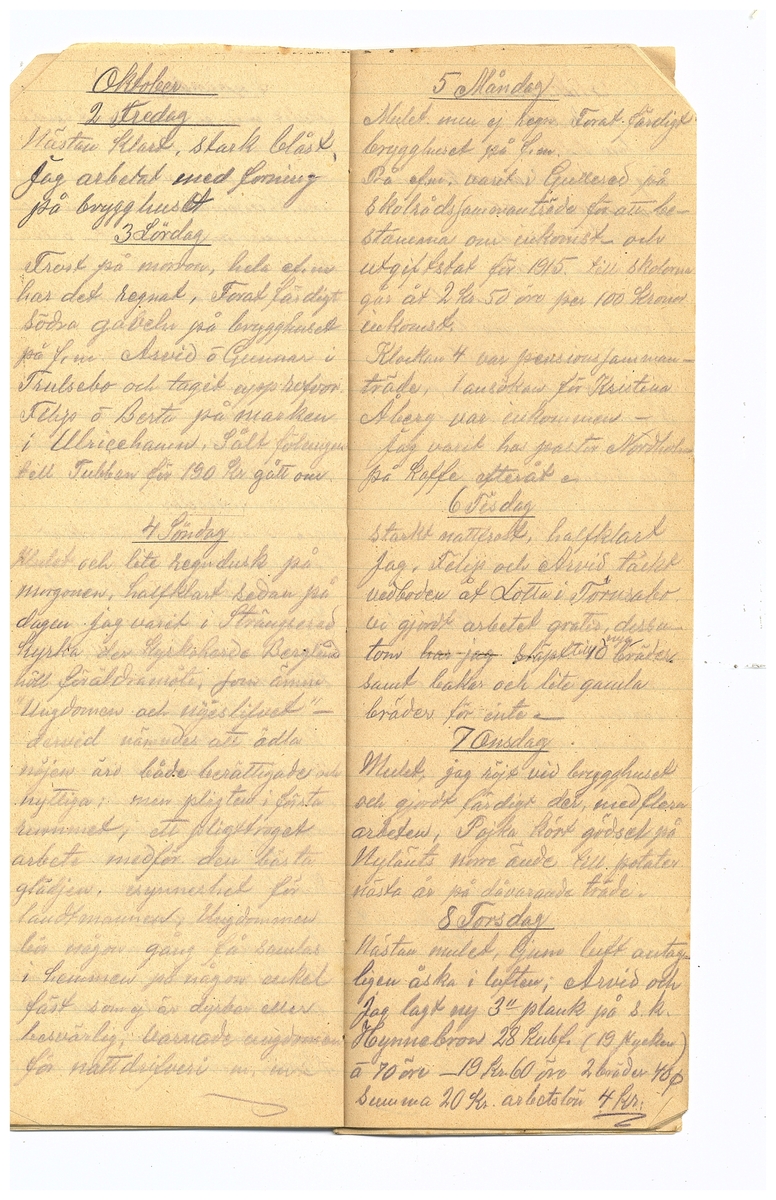 Oktober
2 Fredag
Nästan klart, stark blåst,
Jag arbetat med forning
på brygghuset
3 Lördag
Frost på morron, hela efm
har det regnat, Forat färdigt
södra gaveln på brygghuset
på f.m. Arvid ö Gunnar i
Trulsebo och taget upp
Felip ö Berta på marken
i Ulricehamn. Sålt fölungen
till Tubban för 190 Kr gått om
4 Söndag
Mulet och lite regndusk på
morgonen, halfklart sedan på
dagen jag varit i Strängsered
kyrka der kyrkoherde Berglund
höll föräldramöte, som ämne
"Ungdomen och nöjeslifvet" –
dervid nämndes att ädla
nöjen äro både berättigade och
nyttiga; men pligten i första
rummet, ett pligttroget
arbete medför den bästa
glädjen. isynnerhet för
landtmannen, Ungdommen
bör någon gång få samlas
i hemmen på någon enkel
fäst som ej är dyrbar eller
besvärlig, varnade ungdomen
för nattdrifveri m. m.
5 Måndag
Mulet men ej regn. Forat färdigt
brygghuset på f.m.
På efm. varit i Gullered på
skolrådssammanträde för att be-
stämma om inkomst- och
utgiftstat för 1915. till skolorna
går åt 2 Kr 50 öre per 100 Kronor
inkomst.
Klockan 4 var pensionssamman-
träde, 1 ansökan för Kristina
Åberg var inkommen –
Jag varit hos pastor Nordholm
på Kaffe efteråt
6 Tisdag
starkt nattfrost, halfklart
Jag, Felip och Arvid täckt
vedboden åt Lotta i Törnsabo
vi gjort arbetet gratis, dessu-
tom har jag släpt till 10 nya bräder
samt bakar och lite gamla
bräder för inte –
7 Onsdag
Mulet, jag röjt vid brygghuset
och gjordt färdigt der, med flera
arbeten, Pojka kört gödsel på
Nylänts norre ände till potater
nästa år på dåvarande träde.
8 Torsdag
Nästan mulet, ljum luft antag-
ligen åska i luften; Arvid och
Jag lagt ny 3" plank på s.k.
Hynnebron 28 kubf. (19 stycken)
a 70 öre – 19 Kr 60 öre 2 bräder 40
Summa 20 Kr. arbetslön 4 Kr.